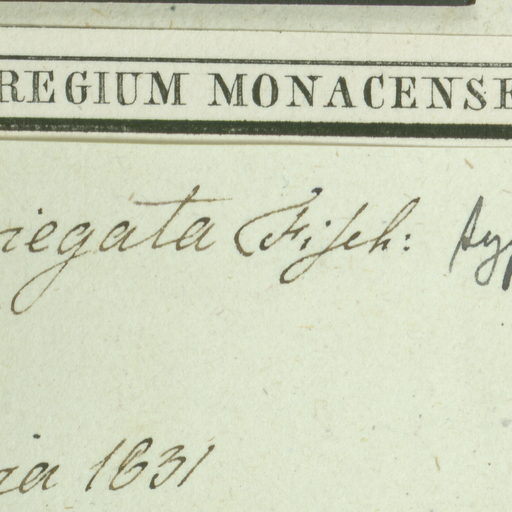 REGIUM MONACENSE
riegata Fisch: typ
ria 1831